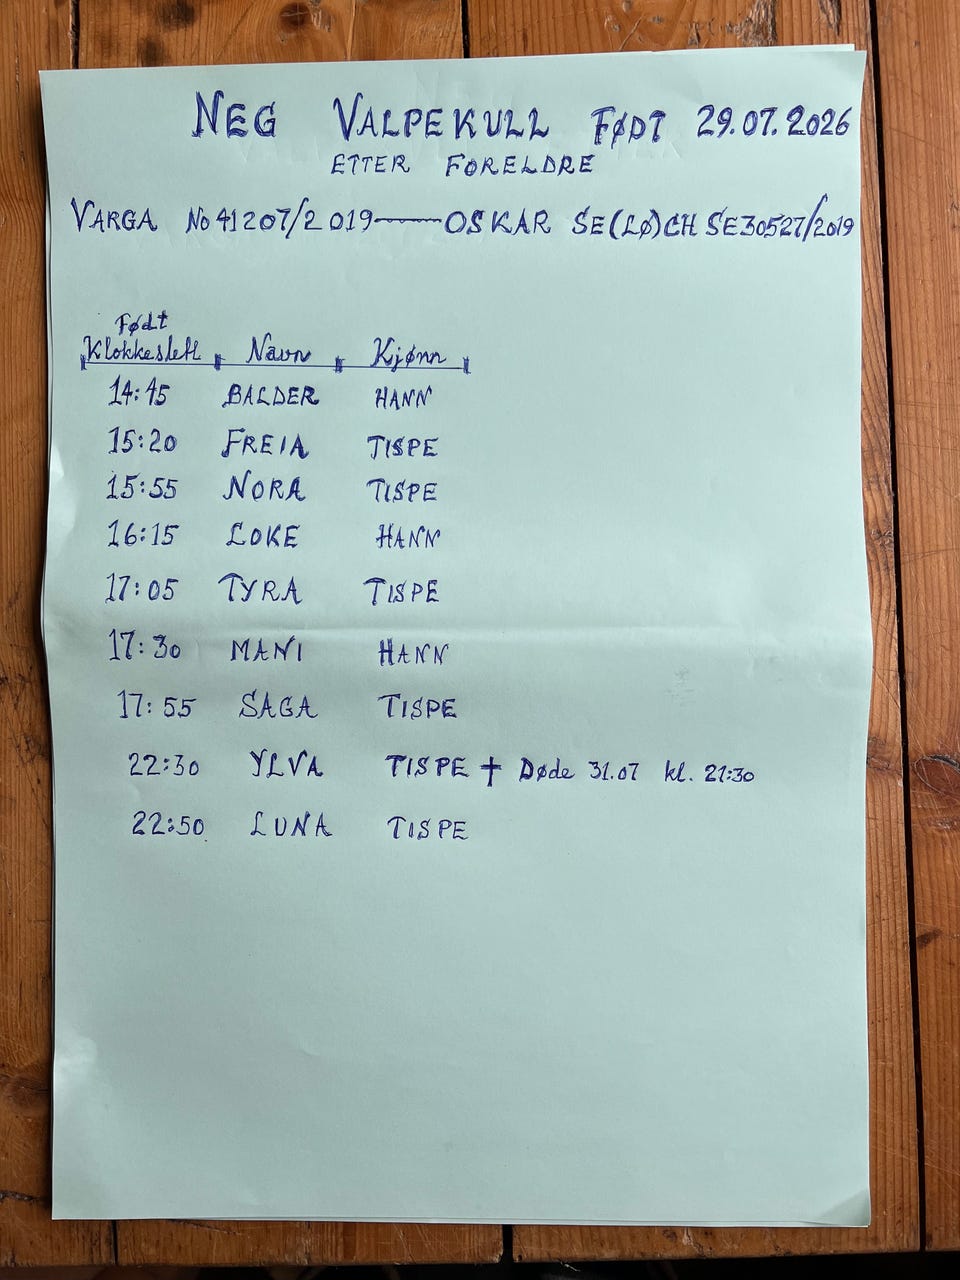 NEG VALPEKULL FØDT 29.07.2026
ETTER FORELDRE
VARGA No 41207/2019 — OSKAR SE(LØ)CH SE30527/2019
Født
Klokkeslett Navn Kjønn
14:45 BALDER HANN
15:20 FREIA TISPE
15:55 NORA TISPE
16:15 LOKE HANN
17:05 TYRA TISPE
17:30 MANI HANN
17:55 SAGA TISPE
22:30 YLVA TISPE † Døde 31.07 kl. 21:30
22:50 LUNA TISPE